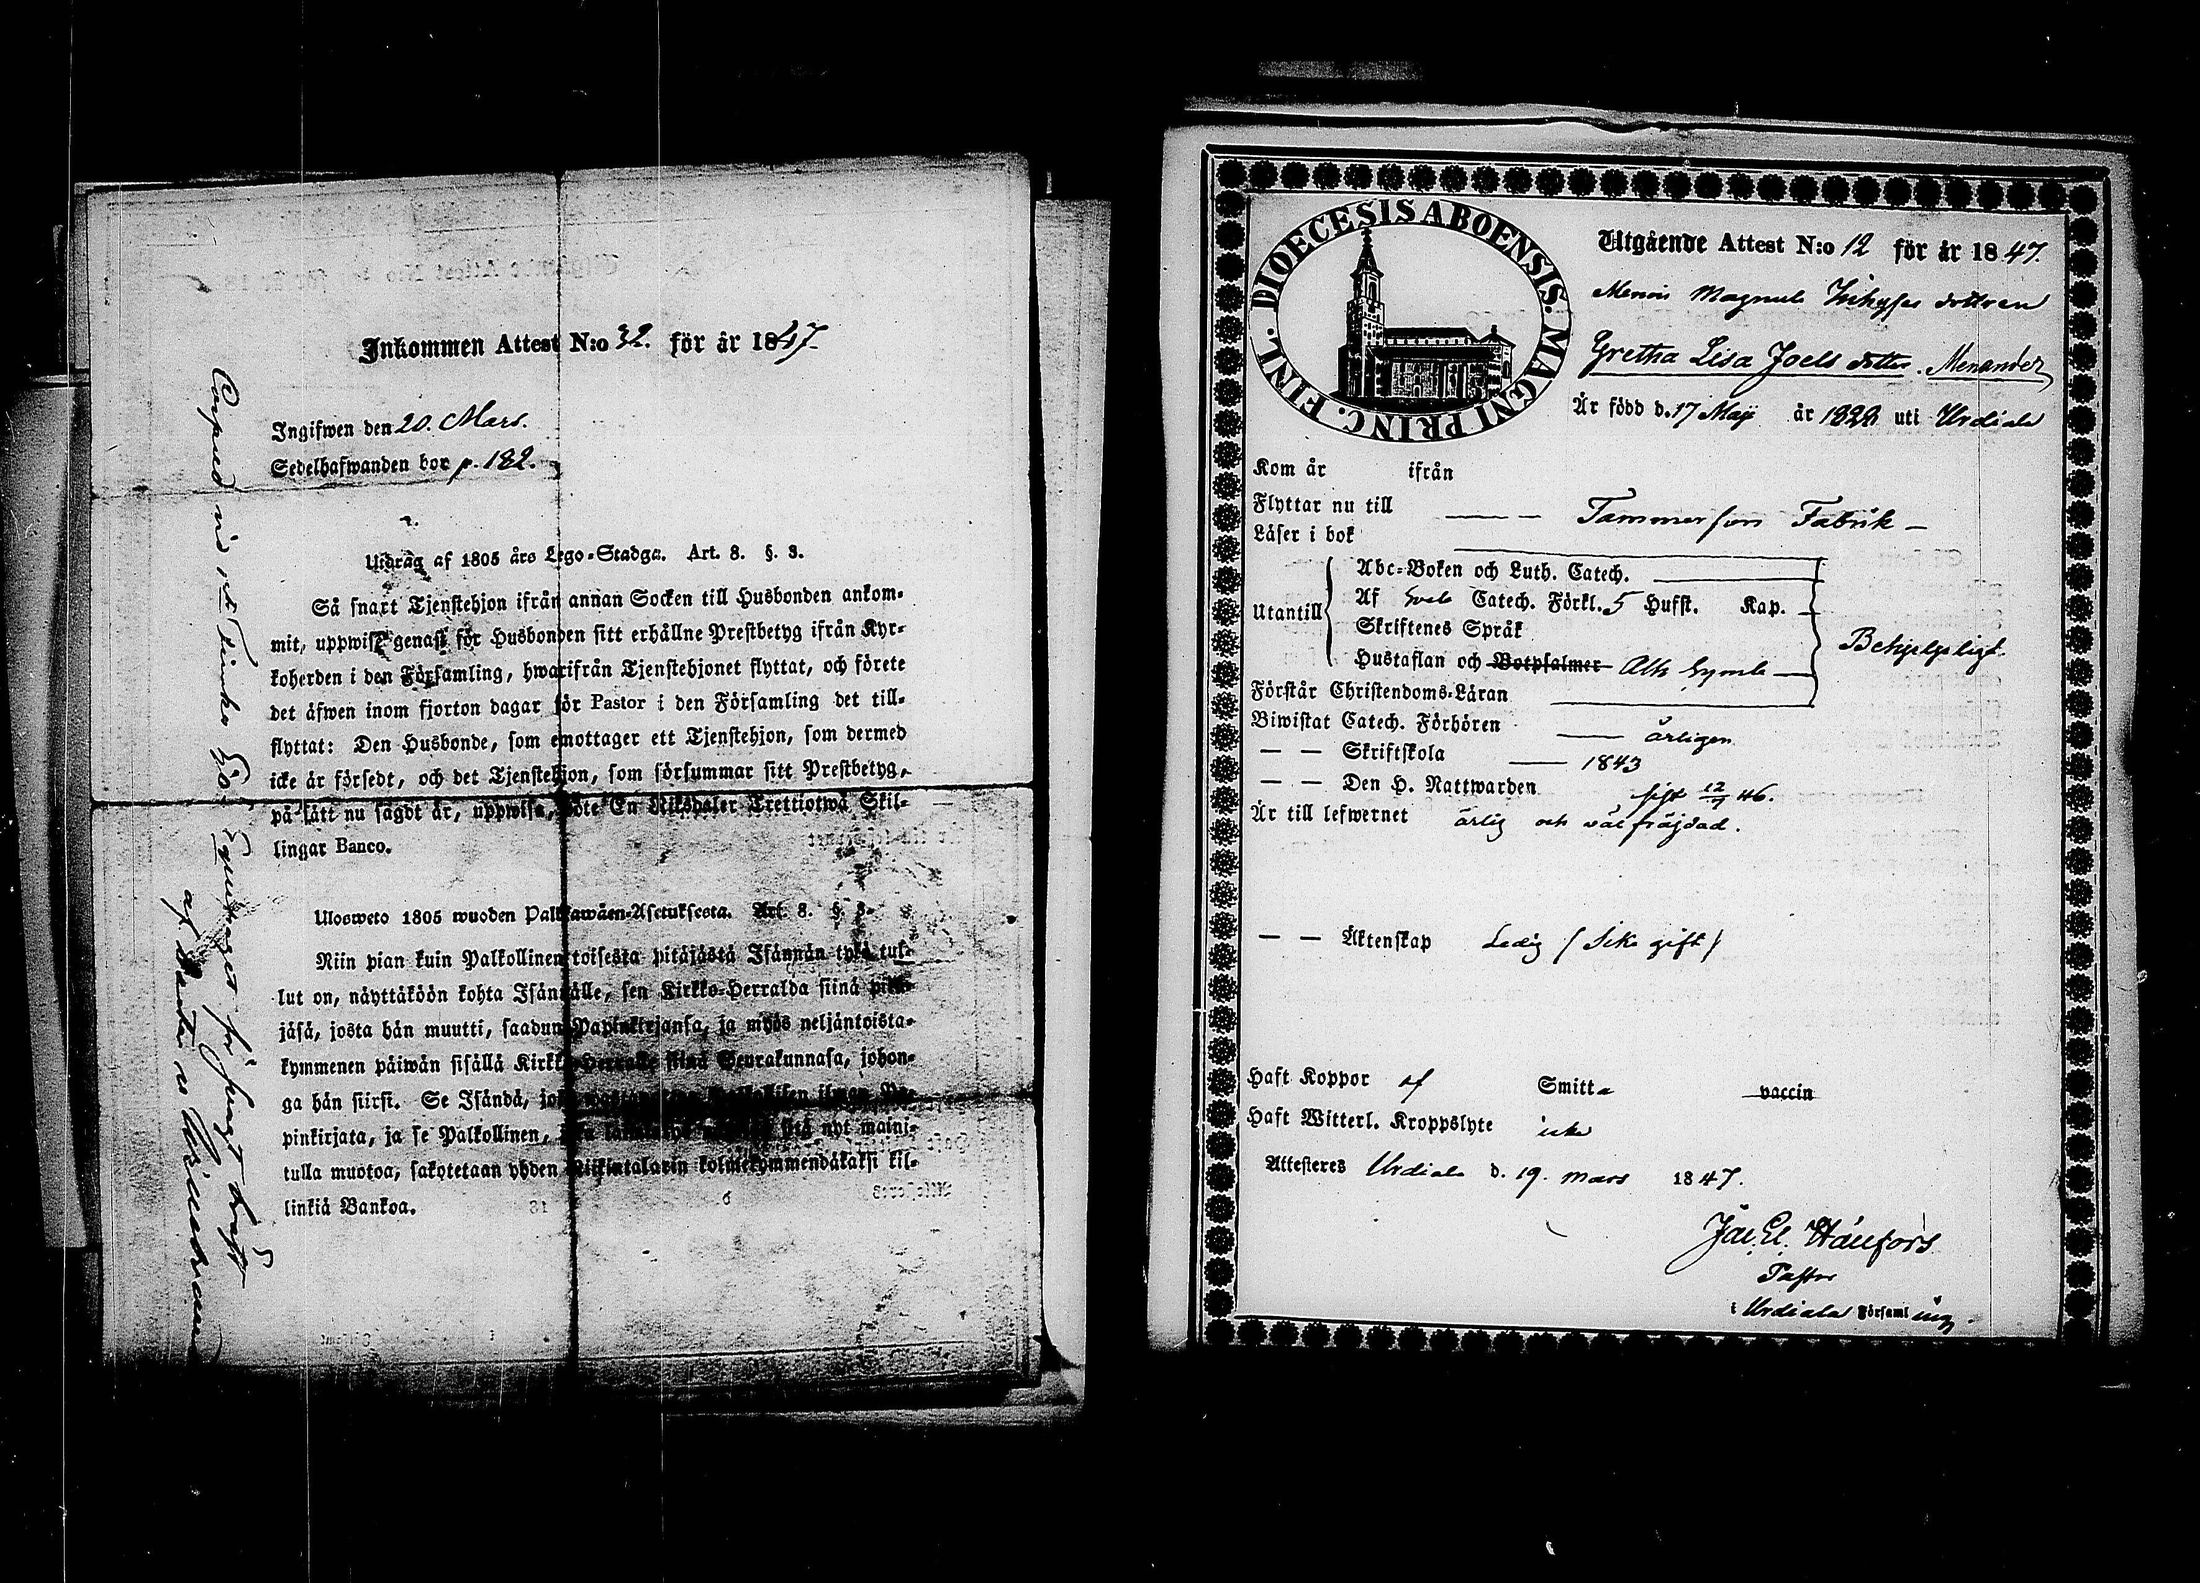 Inkommen Attest N:o 32. för år 1847.
Ingifwen den 20. Mars.
Sedelhafwanden bor p. 182.
Utdrag af 1805 års Lego-Stadga. Art. 8. §. 3.
Så snart Tjenstehjon ifrån annan Socken till Husbonden ankom-
mit, uppwise genast för Husbonden sitt erhållne Prestbetyg ifrån Kyr-
koherden i den Församling, hwarifrån Tjenstehjonet flyttat, och förete
det äfwen inom fjorton dagar för Pastor i den Församling det till-
flyttat: Den Husbonde, som emottager ett Tjenstehjon, som dermed
icke är försedt, och det Tjenstehjon, som försummar sitt Prestbetyg,
på sätt nu sagdt är, uppwisa, böte En Riksdaler Trettiotwå Skil-
lingar Banco.
Ulosweto 1805 wuoden Palkkawäen-Asetuksesta. Art. 8. §. 3.
Niin pian kuin Palkollinen toisesta pitäjästä Isännän tykö tul-
lut on, näyttäköön kohta Isännälle, sen Kirkko-Herralda siinä pitä-
jäsä, josta hän muutti, saadun Papinkirjansa, ja myös neljäntoista-
kymmenen päiwän sisällä Kirkko-Herralle siinä Seurakunnasa, johon-
ga hän siirsi. Se Isändä, joka ilman Pa-
pinkirjata, ja se Palkollinen, nyt maini-
tulla muotoa, sakotetaan yhden Riikintalarin kolmekymmendäkaksi kil-
linkiä Bankoa.
DIOECESIS ABOENSIS. MAGNI PRINC. FINL.
Utgående Attest N:o 12 för år 1847.
Magnus dottren
Gretha Lisa Joels dotter. Menander
Är född d. 17 Maji år 1828 uti Urdiala
Kom år ifrån
Flyttar nu till Tammerfors Fabrik
Läser i bok
Utantill
Abc-Boken och Luth. Catech.
Af Catech. Förkl. 5 Hufst. Kap.
Skriftenes Språk
Hustaflan och Botpsalmer
Behjelpligt.
Förstår Christendoms-Läran
Biwistat Catech. Förhören årligen
— — Skriftskola 1843
— — Den H. Nattwarden sist 12/7 46.
Är till lefwernet ärlig och väl fräjdad.
— — Äktenskap Ledig (icke gift)
Haft Koppor af Smitta vaccin
Haft Witterl. Kroppslyte icke
Attesteres Urdiala d. 19. mars 1847.
Pastor
i Urdiala Församling